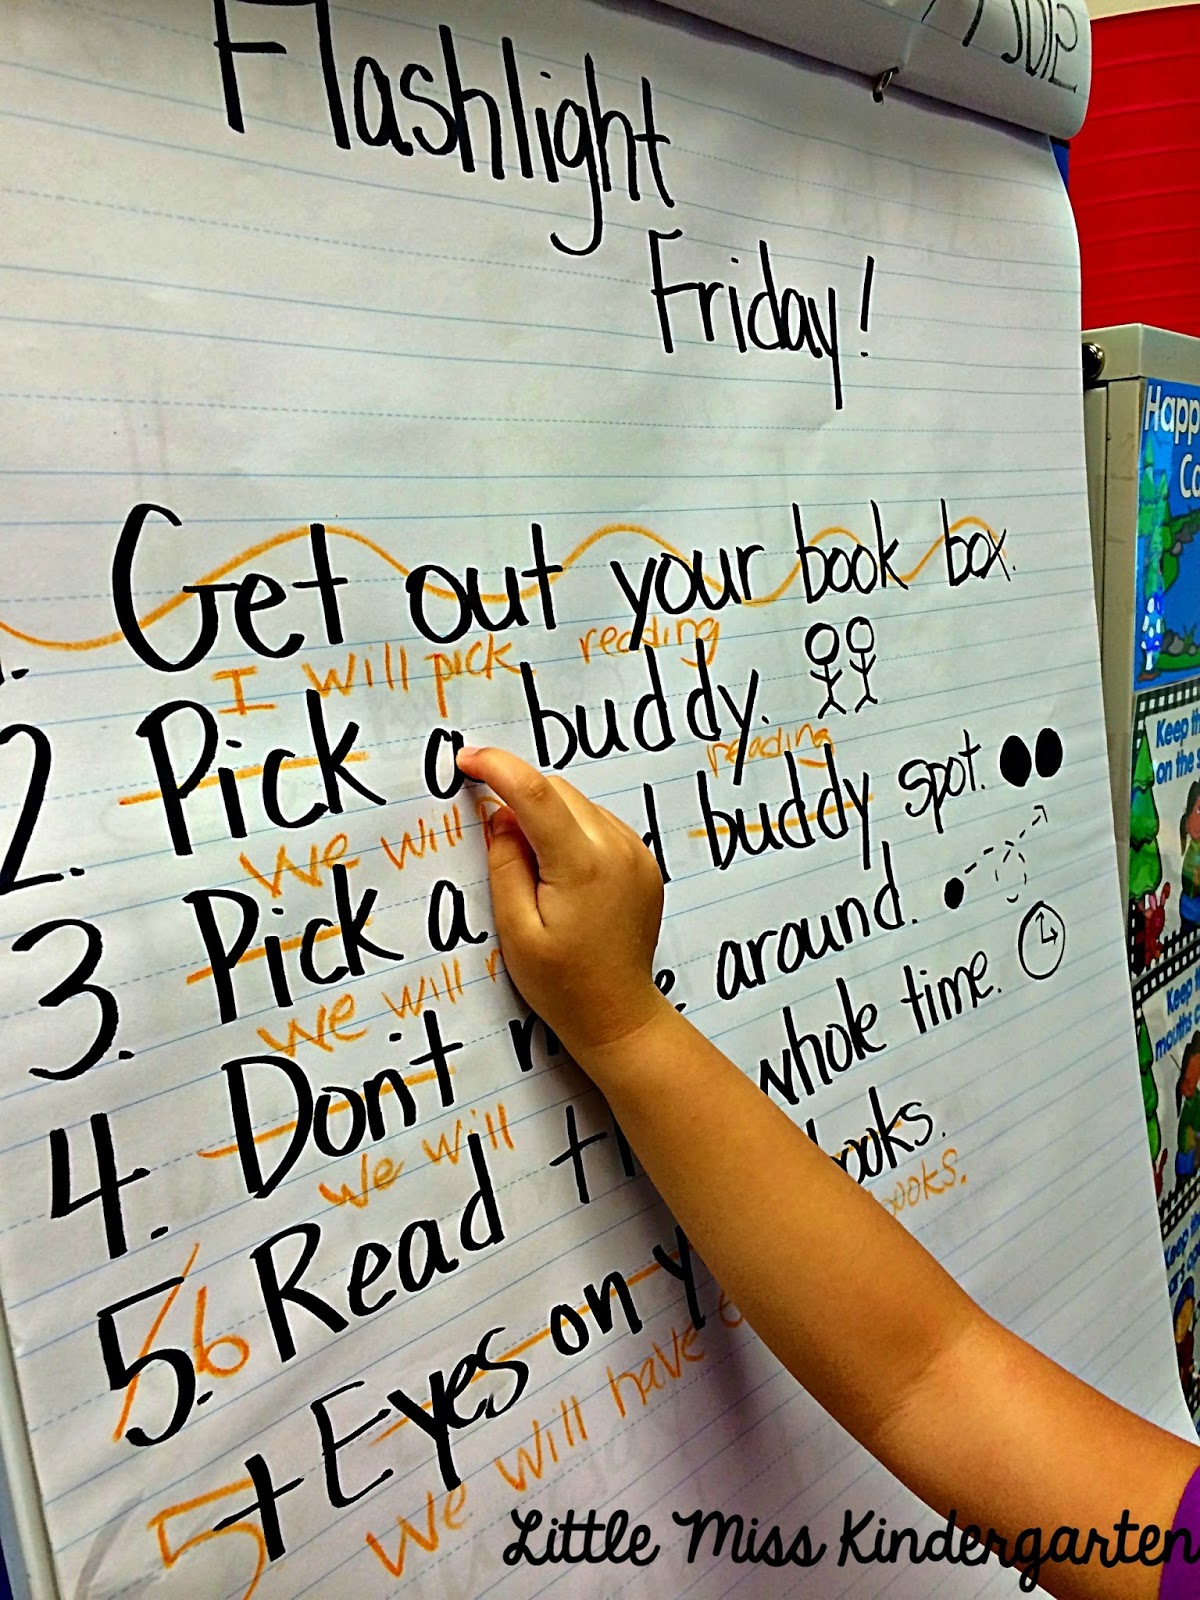 Flashlight
Friday!
1. Get out your book box.
I will pick reading
2. Pick a buddy.
We will reading
3. Pick a buddy spot.
we will
4. Don't around.
we will
5. 6 Read whole time.
5 + Eyes on books.
we will have books.
Happy
Keep
on the
Keep
mouths
Keep
Little Miss Kindergarten